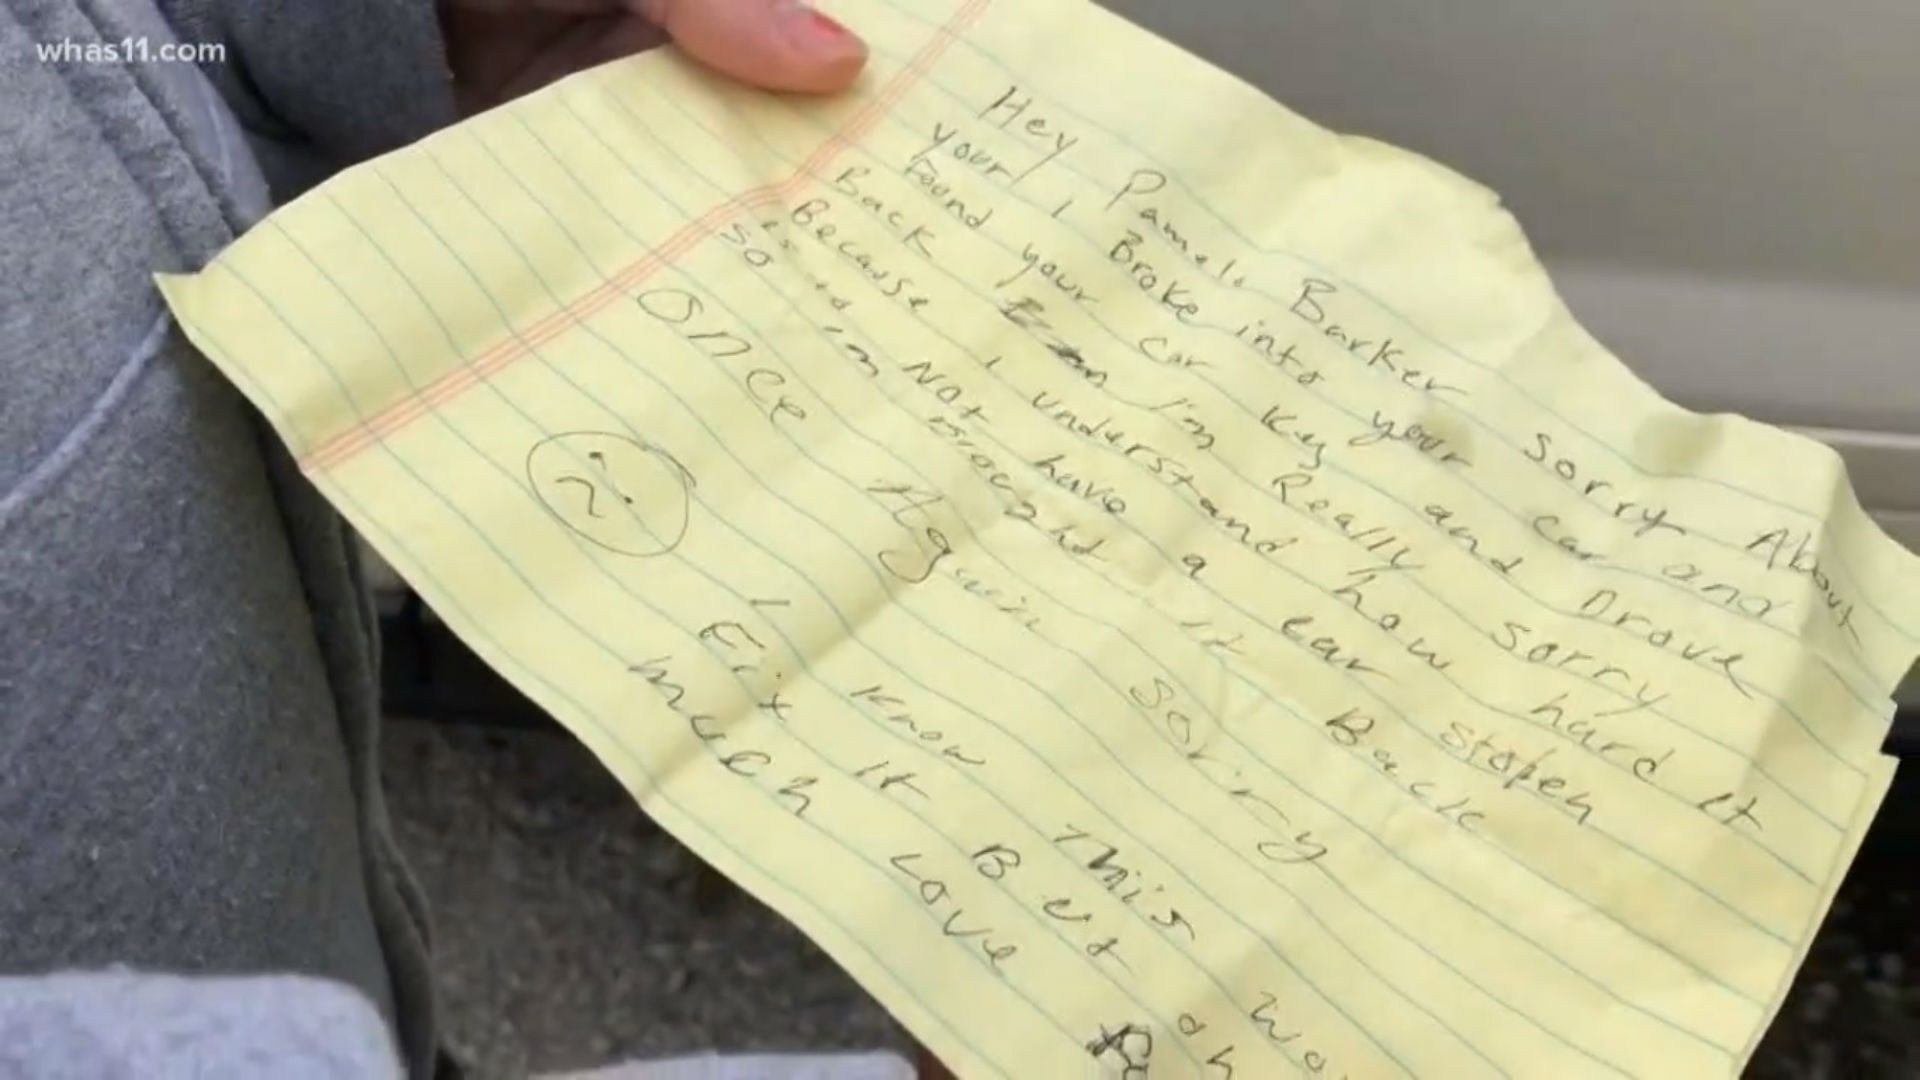 whas11.com
Hey Pamela Barker sorry About
your, I Broke into your car and
Found your car key and Drove
Back I'm Really sorry
Because I understand how hard it
is to NOT have a car stolen
so im Brought it Back
Once Again Sorry
I know This
Fix it But
much Love